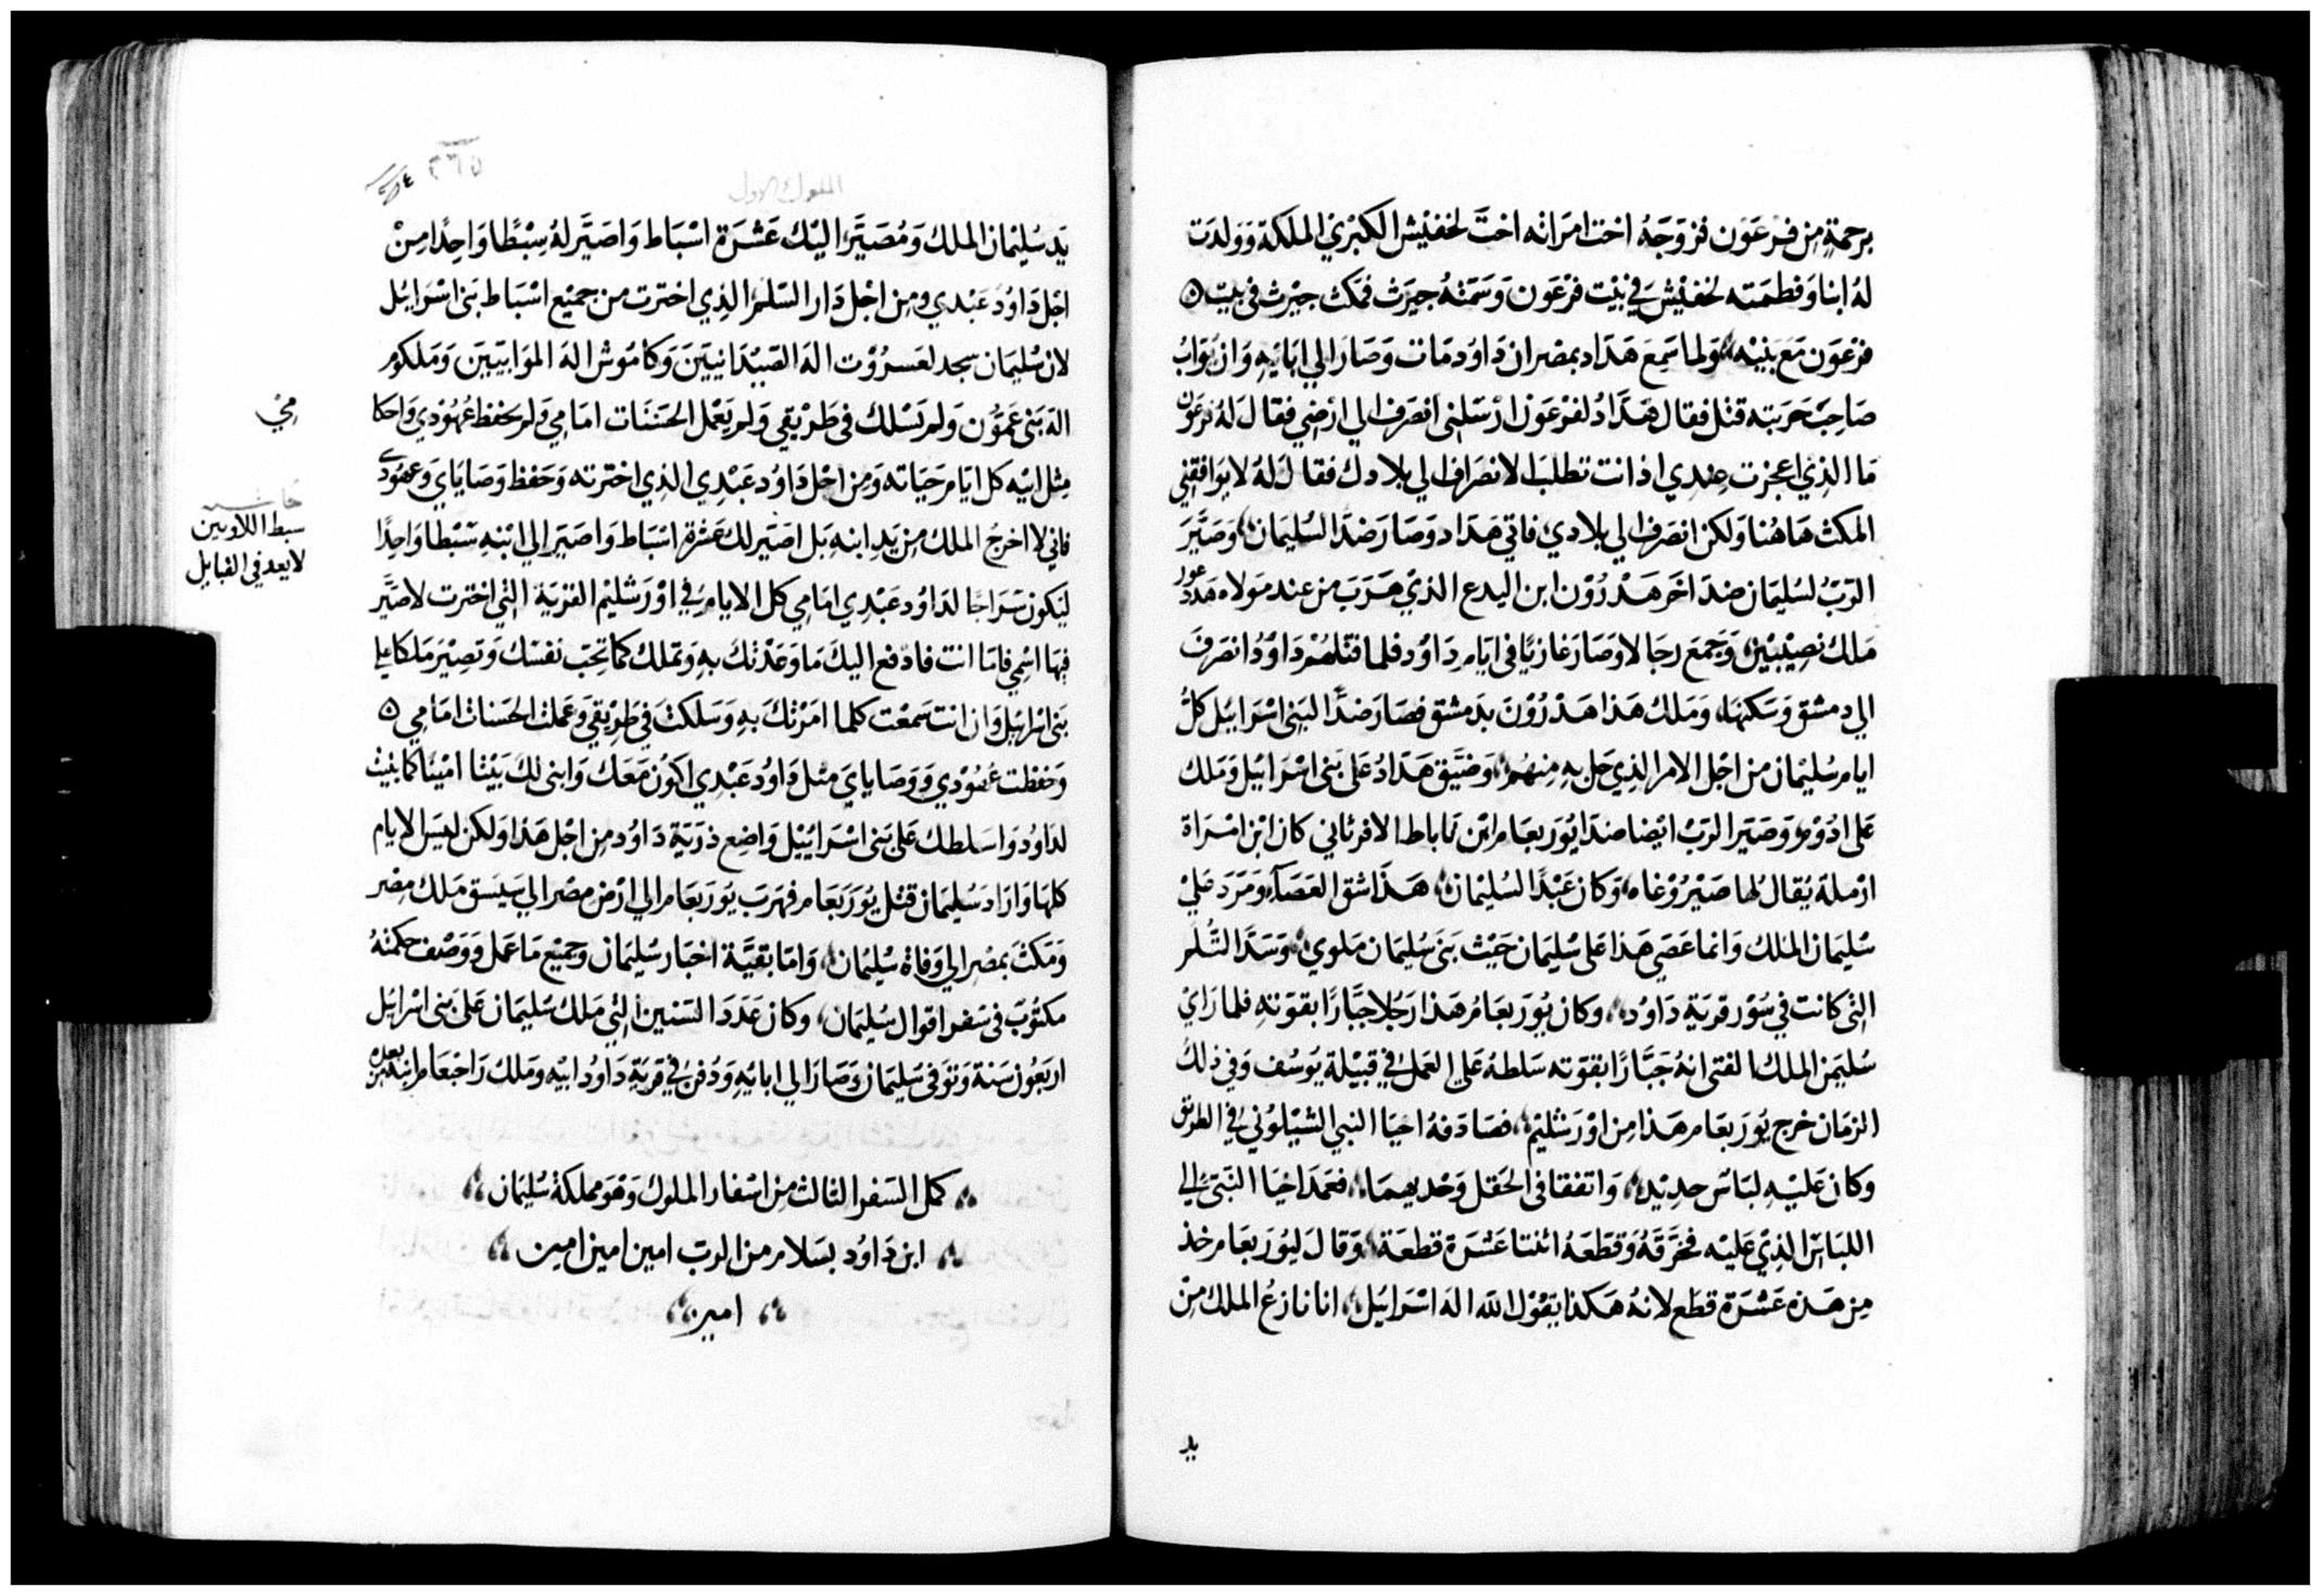 برحمةٍ مِن فرعَون فزوَجَهُ اخت امرَاته اختَ لخفنيش الكبرَي الملكة وَولدَت
لهُ ابنا وَفطمَته لخفنيش فِي بَيْت فرْعَون وَسَمَتْهُ جيرَث فمَكث جيْرث في بيت ٥
فرْعَون مَعَ بَنيْه، وَلما سَمِعَ هَدَاد بمصر ان دَاوُد مَات وَصَارَ الي ابَايَهِ وَان يوَابُ
صَاحِبَ حَرَبته قتل فقال هَدَادُ لفرْعَون ارْسَلني انصَرف الي ارْضِي فقال لَهُ فرعَون
مَا الذِي اعجزت عِندِي اذ انت تطلبَ الانصَرَاف الي بلادك فقال لهُ لا يوَافقني
المكث هَاهُنا وَلكن انصَرف الي بلادي، فاتي هَدَاد وَصَارَ ضدًا لسُليمَان، وَصَيَّرَ
الرَبُ لسُليمَان ضدَ اخَر هَدْرُوْن ابن اليدع الذيْ هَرَبَ مِن عند مَولاه هَدد عور
مَلك نصِيْبيْن، وَجَمَعَ رجَالا وَصَارَ غازيًا في ايَامِ دَاوُد فلما قتلهُمْ دَاوُدُ انصَرَفَ
الي دمشق وَسَكنهَا، وَمَلكَ هَذا هَدْرُوْنَ بدَمشق فصَارَ ضدًّا لبَني اسْرَايُل كلَّ
ايام سُليْمَان من اجْل الامر الذِي حَل بهِ مِنهُم، وَضيَّق هَدَادُ عَلي بَني اسْرَايُيْل وَمَلك
عَلي ادُوْم، وَصَيَر الرَبُ ايْضا ضدَا يُوْرَبعَام ابْن نَاباط الافرثاني كان ابْن امْرَاة
ارْملة يُقالُ لهَا صَيْرُوْغاه، وَكان عَبْدًا لسُليْمَان، هَذا شق العَصَآءِ وَمَرَدَ عَليْ
سُليْمَان المَلك وَانما عَصَي هَذا عَلي سُليْمَان حَيْث بَنَي سُليمَان مَلوي، وَسَدَّ الثُلَم
التي كانت في سُوْر قريَةِ دَاوُد، وَكان يُوْرَبعَامُ هَذا رَجُلا جَبَّارًا بقوَتهِ فلما رَايْ
سُليمَن الملك الفتي انهُ جَبَّارًا بقوَته سَلطهُ عَلي العَمَل في قبيْلة يُوسُف وَفي ذلك
الزمَان خرج يُوْرَبعَام هَذا مِن اوْرَشليْم، فصَادَفهُ احيَا النبي الشيْلوُني في الطريق
وَكان عَليْهِ لبَاسَ جديْد، وَاتفقا في الحَقل وَحْديهمَا، فعَمَد احْيَا النَبيُّ الي
اللبَاسِ الذِيْ عَليْه فخرَّقهُ وَقطَعَهُ اثنتا عَشرَة قطعَة، وَقالَ ليُوْرَبعَام خذ
مِن هَذهِ عَشرَة قطَع لانهُ هَكذا يَقوْل الله الهَ اسْرَايُل، انا نازعُ الملك مِنْ
يد
الملوك الاول
يَد سُليْمَان الملك وَمُصَيِّر اليْك عَشرَة اسْبَاط وَاصَيِّر لهُ سِبْطًا وَاحِدًا مِنْ
اجْل دَاوُدَ عَبْدي وَمِن اجْل دَار السّلم الذِي اخترت من جَميْع اسْبَاط بَني اسْرَايُل
لان سُليْمَان سجد لعَسرُوْت الهَ الصَيْدَانييَن وَكامُوش الهَ الموَابيّيَن وَمَلكوم
الهَ بَني عَمُّون وَلم تسْلك في طرْيقي وَلم يَعْمل الحَسَنَات امَامِي وَلم يَحْفظ عُهُوْدي وَاحكا
مِثل ابيْه كل ايام حَيَاته وَمِن اجْل دَاوُد عَبْدِي الذِي اخترته وَحَفظ وَصَايَايَ وَعهُوْدي
فاني لا اخرجُ الملك مِن يَدِ ابنهِ بَل اصَيّر لك عَشرَة اسْبَاط وَاصَيّر الي ابْنهِ سْبْطا وَاحِدًا
ليَكون سْرَاجَا لدَاوُد عَبْدِي امَامِي كل الايام فِي اوْرَشليْم القرْيَة التي اخترت لاصَيَّر
فيْهَا اسْمِي فامّا انت فادْفع اليك مَا وَعَدْتك بهِ وَتملك كما تحِبّ نفسْك وَتصيْر مَلكا علي
بَني اسْرايل وَان انت سَمعْت كلما امَرْتكَ بهِ وَسَلكتْ في طريْقي وَعَملت الحَسَنات امَامِي ٥
وَحَفظت عُهُوْدي وَوَصَايايَ مثل دَاوُد عَبْدِي اكوُن مَعَكَ وَابني لكَ بَيْتا امْيْنًا كما بَنيْت
لدَاوُد وَاسَلطك عَلي بَني اسْرَايُيْل وَاضِع ذريَة دَاوُد مِن اجْل هَذا وَلكن ليسَ الايام
كلهَا وَارَادَ سُليمَان قتل يُوْرَبَعَام فهَربَ يُوْرَبَعَام الي ارْض مصْر الي سَيسَق مَلك مِصْر
وَمَكثَ بمصْر الي وَفاة سُليْمَان، وَامّا بَقيَّة اخبَار سُليْمَان وجميْع مَا عَمل وَوَصْف حكمَتهُ
مَكتوُبَ في سَفر اقوال سُليمَان، وَكان عَدَدَ السَنين التي مَلك سُليمَان عَلي بَني اسْرايُل
ارَبَعُون سَنة وَتوَفي سُليمَان وَصَارَ الي ابايَهِ وَدُفن في قريَة دَاوُد ابيْه وَمَلك رَاحْبَعَام ابنه من بعده
كمل السَفر الثالث مِن اسْفار الملوك وَهْوَ مملكة سُليْمان
ابن دَاوُد بسَلام من الرب امين امين امين
امين
مِي
حاشيه
سبط اللاويين
لا يعد في القبايل